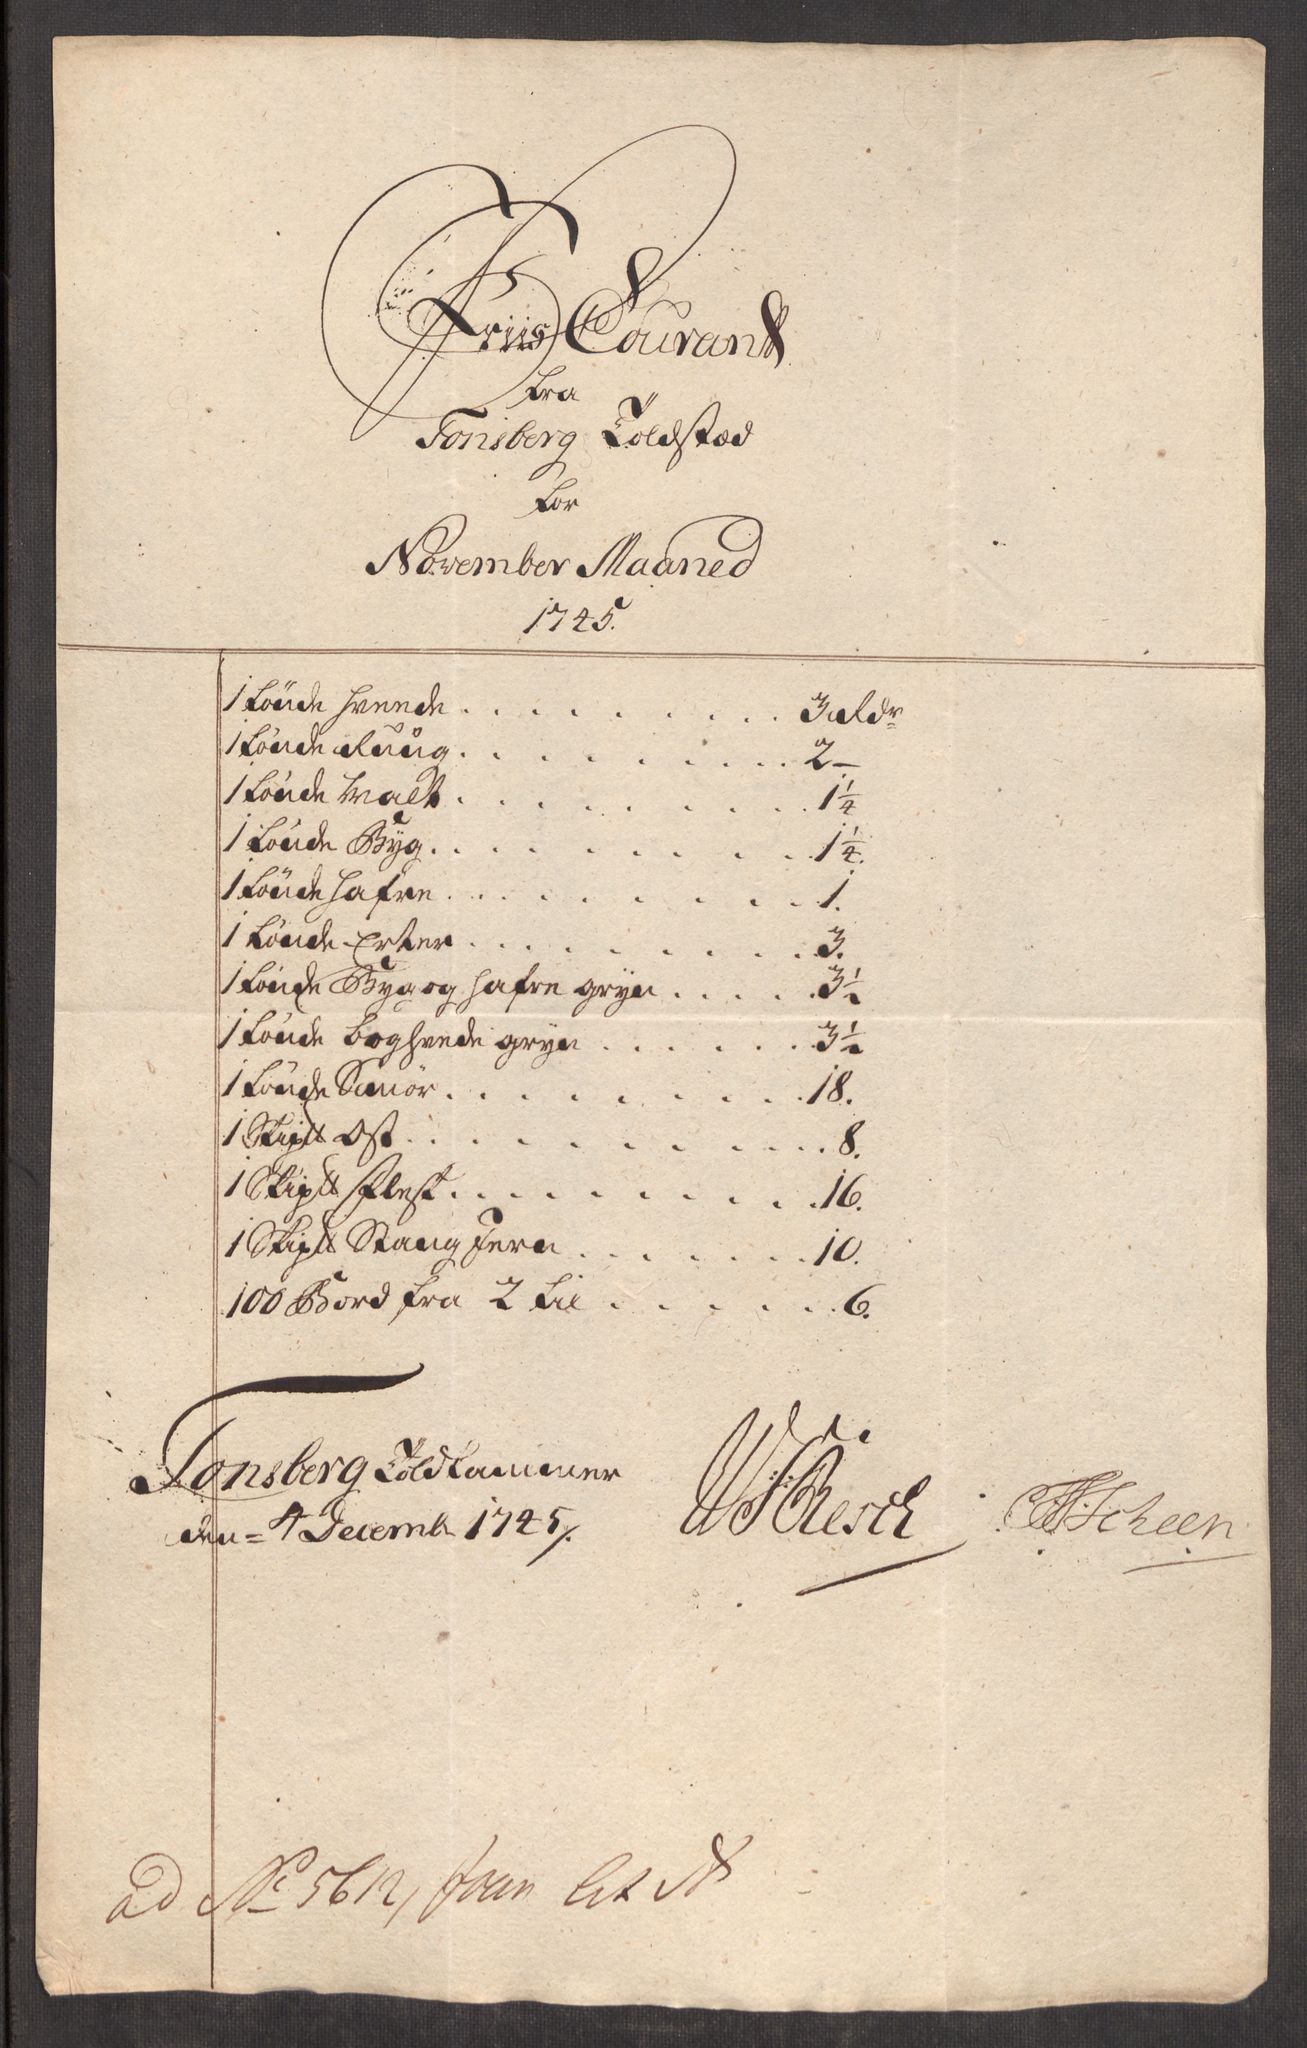 Priis Courant
fra
Tonsberg Toldstæd
for
November Maaned
1745.
1 tönde hveede . . . . . . . . . 3 Rdr
1 tönde Ruug . . . . . . . . . 2 –
1 tönde Malt . . . . . . . . . 1¼
1 tönde Byg . . . . . . . . . 1¼.
1 tönde hafre . . . . . . . . . 1.
1 tönde Erter . . . . . . . . . 3.
1 tönde Byg og hafre gryn . . . . 3½
1 tönde boghvede gryn . . . . . . 3½
1 tönde Smör . . . . . . . . . 18.
1 Skip℔ Ost . . . . . . . . . 8.
1 Skip℔ Flesk . . . . . . . . . 16.
1 Skip℔ Stang Jern . . . . . . 10.
100 Bord fra 2 til . . . . . . 6.
Tonsberg Toldkammer
den 4 Decemb 1745.
Resch Scheen
ad No 5612, Lit